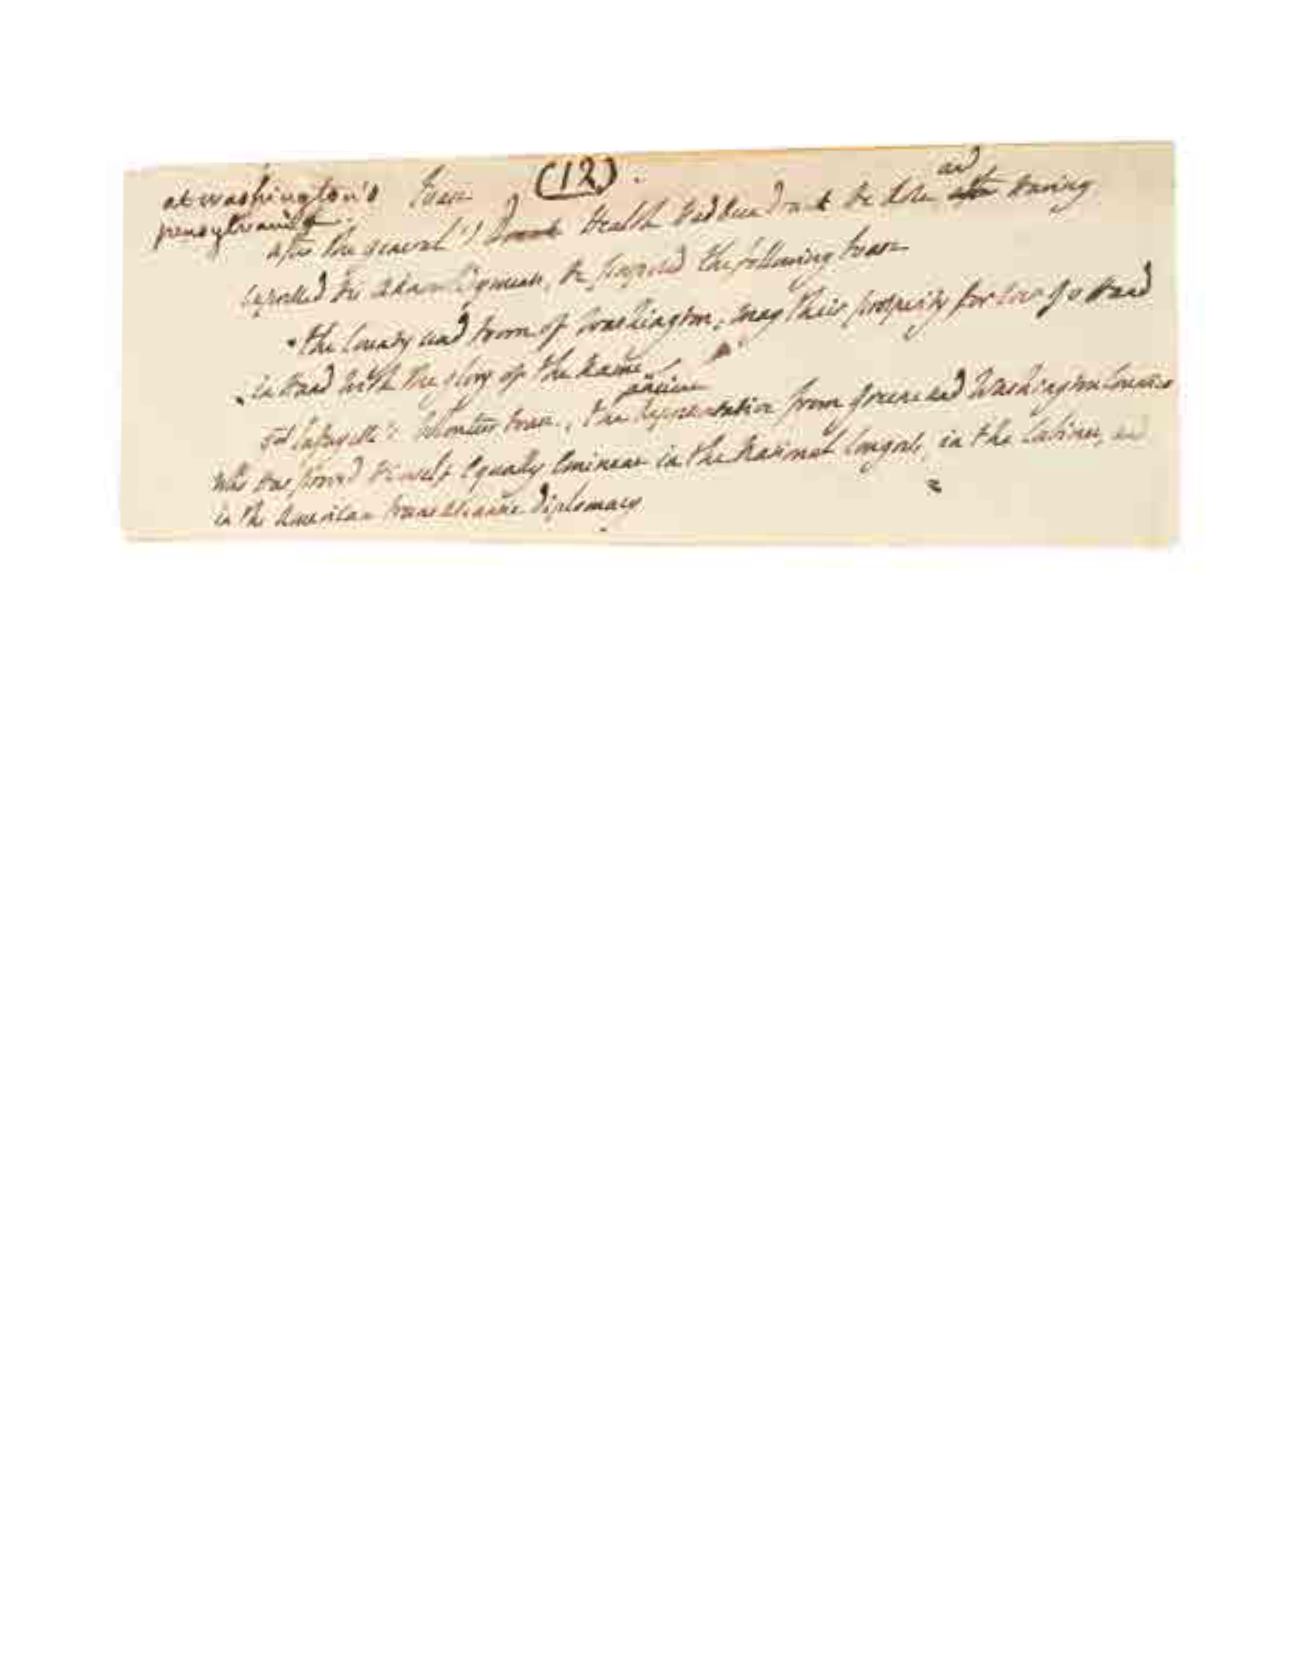 (12).
at washington's Toast
pensylvania
and
after the general's Health had been drank he rose having
expressed his acknowledgments, he proposed the following toast
"the County and town of Washington; may their prosperity for ever go hand
in hand with the glory of the name
ancient
Lafayette's Volunteer toast, the representative from greene and Washington Counties
who has proved himself equally eminent in the National Congress, in the Cabinet, and
in the American transatlantic diplomacy